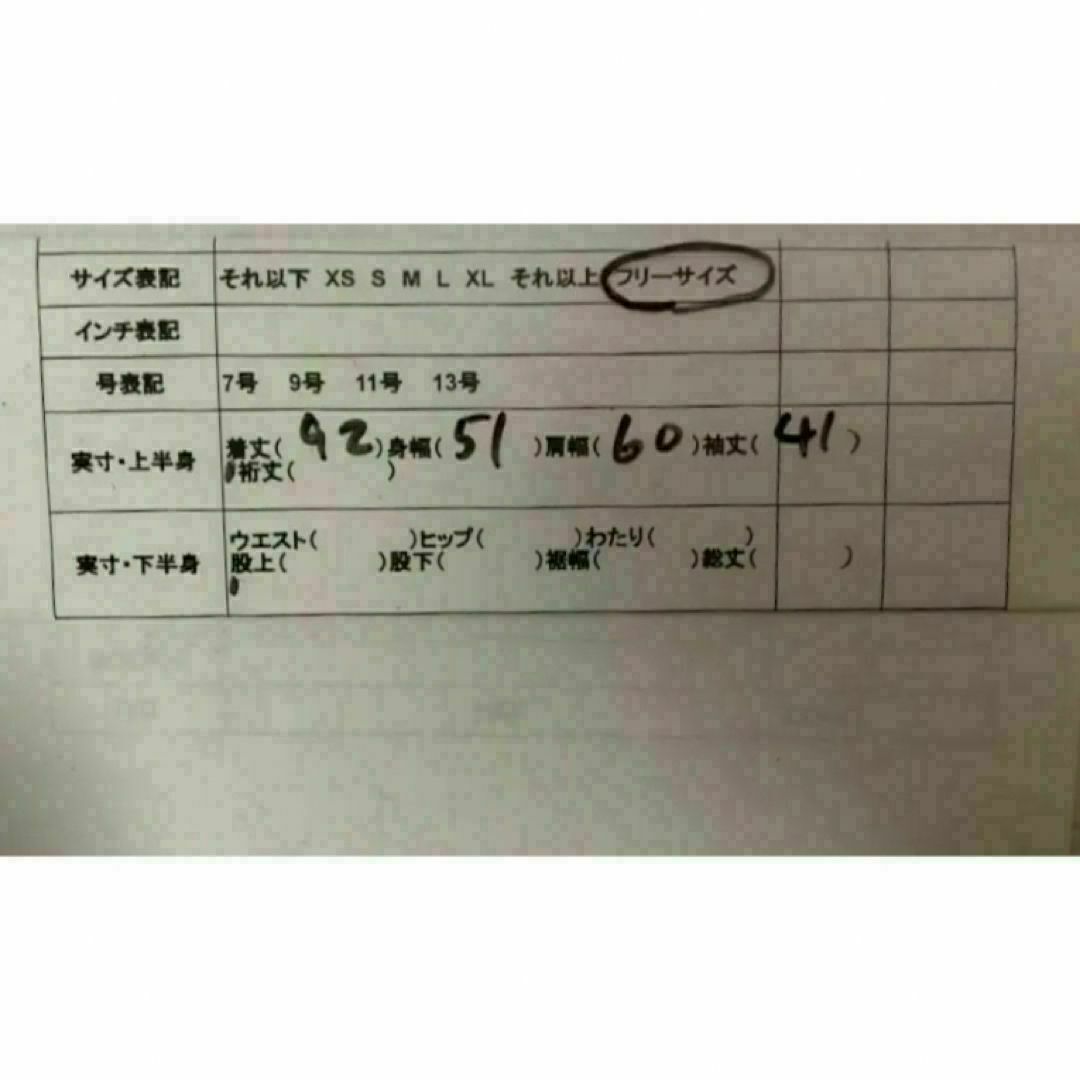 サイズ表記 それ以下 XS S M L XL それ以上 フリーサイズ
インチ表記
号表記 7号 9号 11号 13号
実寸・上半身 着丈( 92 )身幅( 51 )肩幅( 60 )袖丈( 41 )
裄丈( )
実寸・下半身 ウエスト( )ヒップ( )わたり( )
股上( )股下( )裾幅( )総丈( )